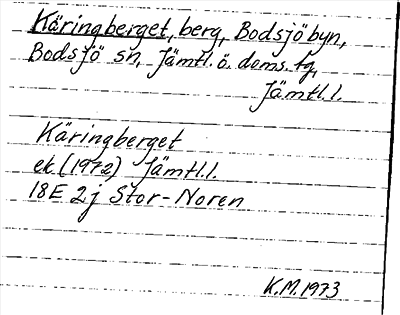 Käringberget, berg, Bodsjöbyn,
Bodsjö sn, Jämtl. ö. doms. tg,
Jämtl. l.
Käringberget
ek. (1972) Jämtl. l.
18E 2j Stor-Noren
K.M. 1973